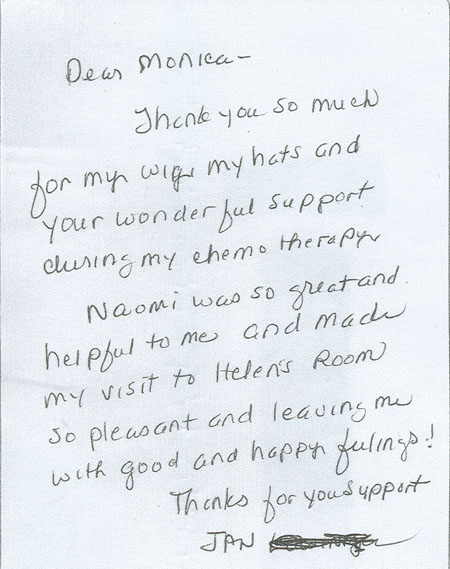 Dear Monica-
Thank you so much
for my wigs my hats and
your wonderful support
during my chemo therapy
Naomi was so great and
helpful to me and made
my visit to Helen's Room
so pleasant and leaving me
with good and happy feelings!
Thanks for you support
JAN